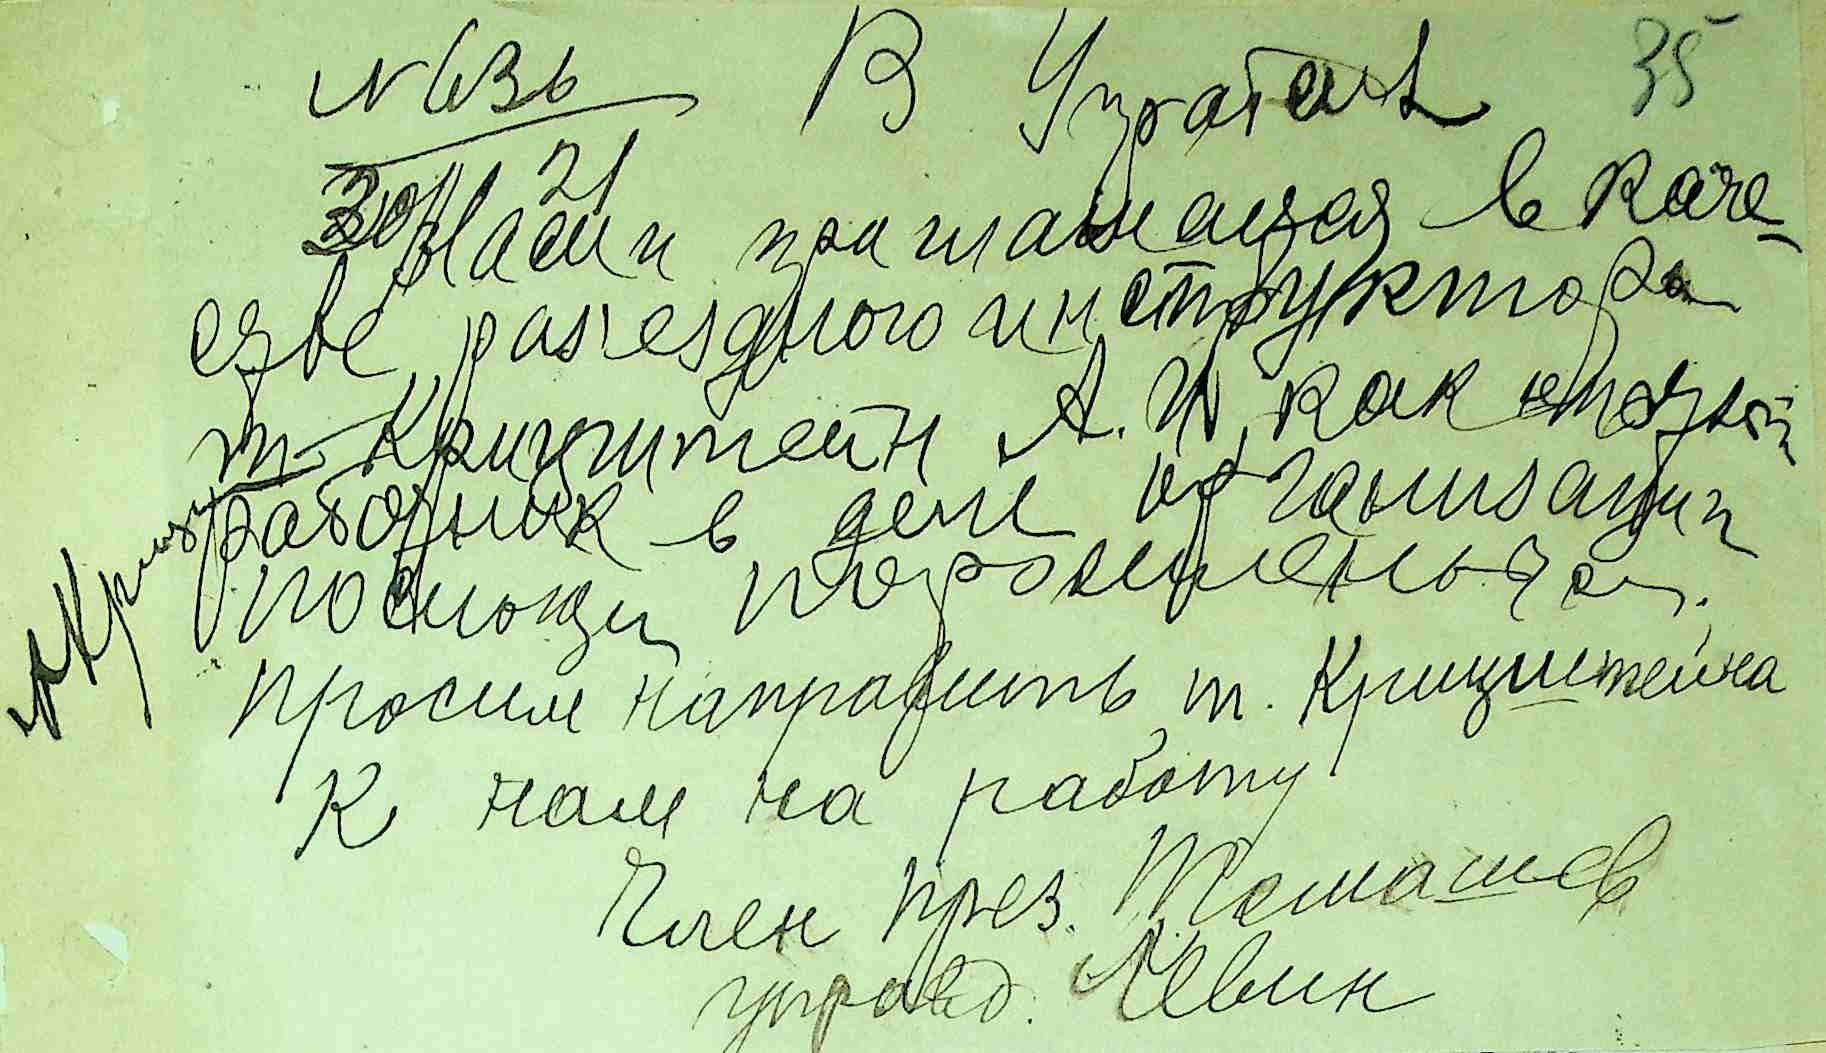 № 636 В Упрабсил 35
Нами приглашается в каче-
стве разъездного инструктора
т. Крицштейн А. И. как опытный
работник в деле организации
помощи переселенцам.
Просим направить т. Крицштейна
К нам на работу
Член през. Томашев
управд. Левин